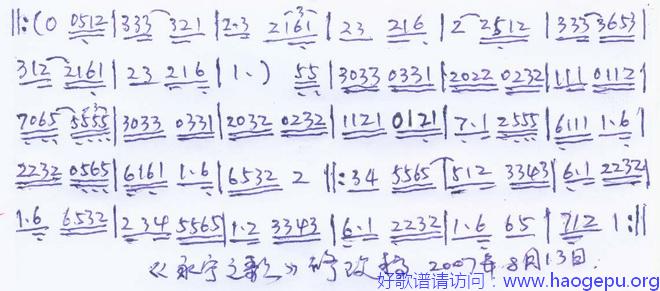 ‖:(0 0512|333 321|2·3 2161|23 216|2 2512|333 3653|
312 2161|23 216|1·) 55|3033 0331|2022 0232|111 0112|
7065 5555|3033 0331|2032 0232|1121 0121|7·1 2555|6111 1·6|
2232 0565|6161 1·6|6532 2 ‖:34 5565|512 3343|6·1 2232|
1·6 6532|234 5565|1·2 3343|6·1 2232|1·6 65|712 1:‖
《永宁之歌》修改稿 2007年8月13日.
好歌谱请访问：www.haogepu.org